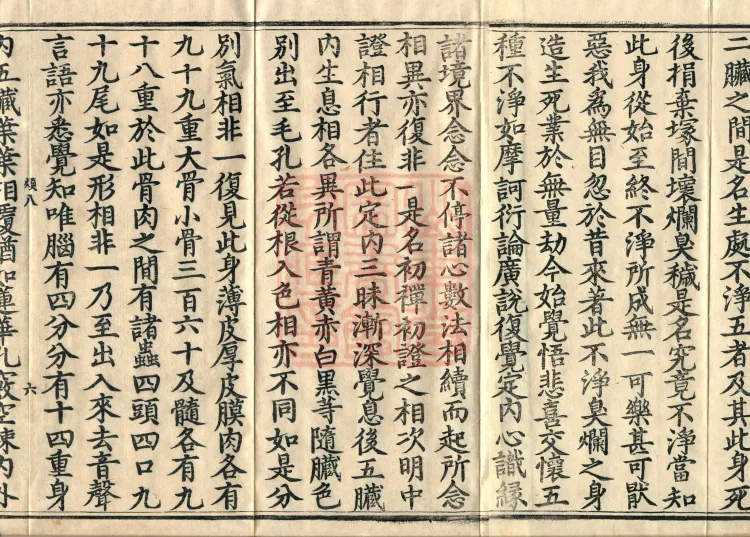 二臟之間是名生處不淨五者及其此身死
後捐棄塚間壞爛臭穢是名究竟不淨當知
此身從始至終不淨所成無一可樂甚可猒
惡我爲無目忽於昔來著此不淨臭爛之身
造生死業於無量劫今始覺悟悲喜交懷五
種不淨如摩訶衍論廣説復覺定內心識緣
諸境界念念不停諸心數法相續而起所念
相異亦復非一是名初禪初證之相次明中
證相行者住此定內三昧漸深覺息後五臟
內生息相各異所謂青黃赤白黑等隨臟色
別出至毛孔若從根入色相亦不同如是分
別氣相非一復見此身薄皮厚皮膜肉各有
九十九重大骨小骨三百六十及髓各有九
十八重於此骨肉之間有諸蟲四頭四口九
十九尾如是形相非一乃至出入來去音聲
言語亦悉覺知唯腦有四分分有十四重身
內五藏葉葉相覆猶如蓮華孔竅空疎內外
八
六